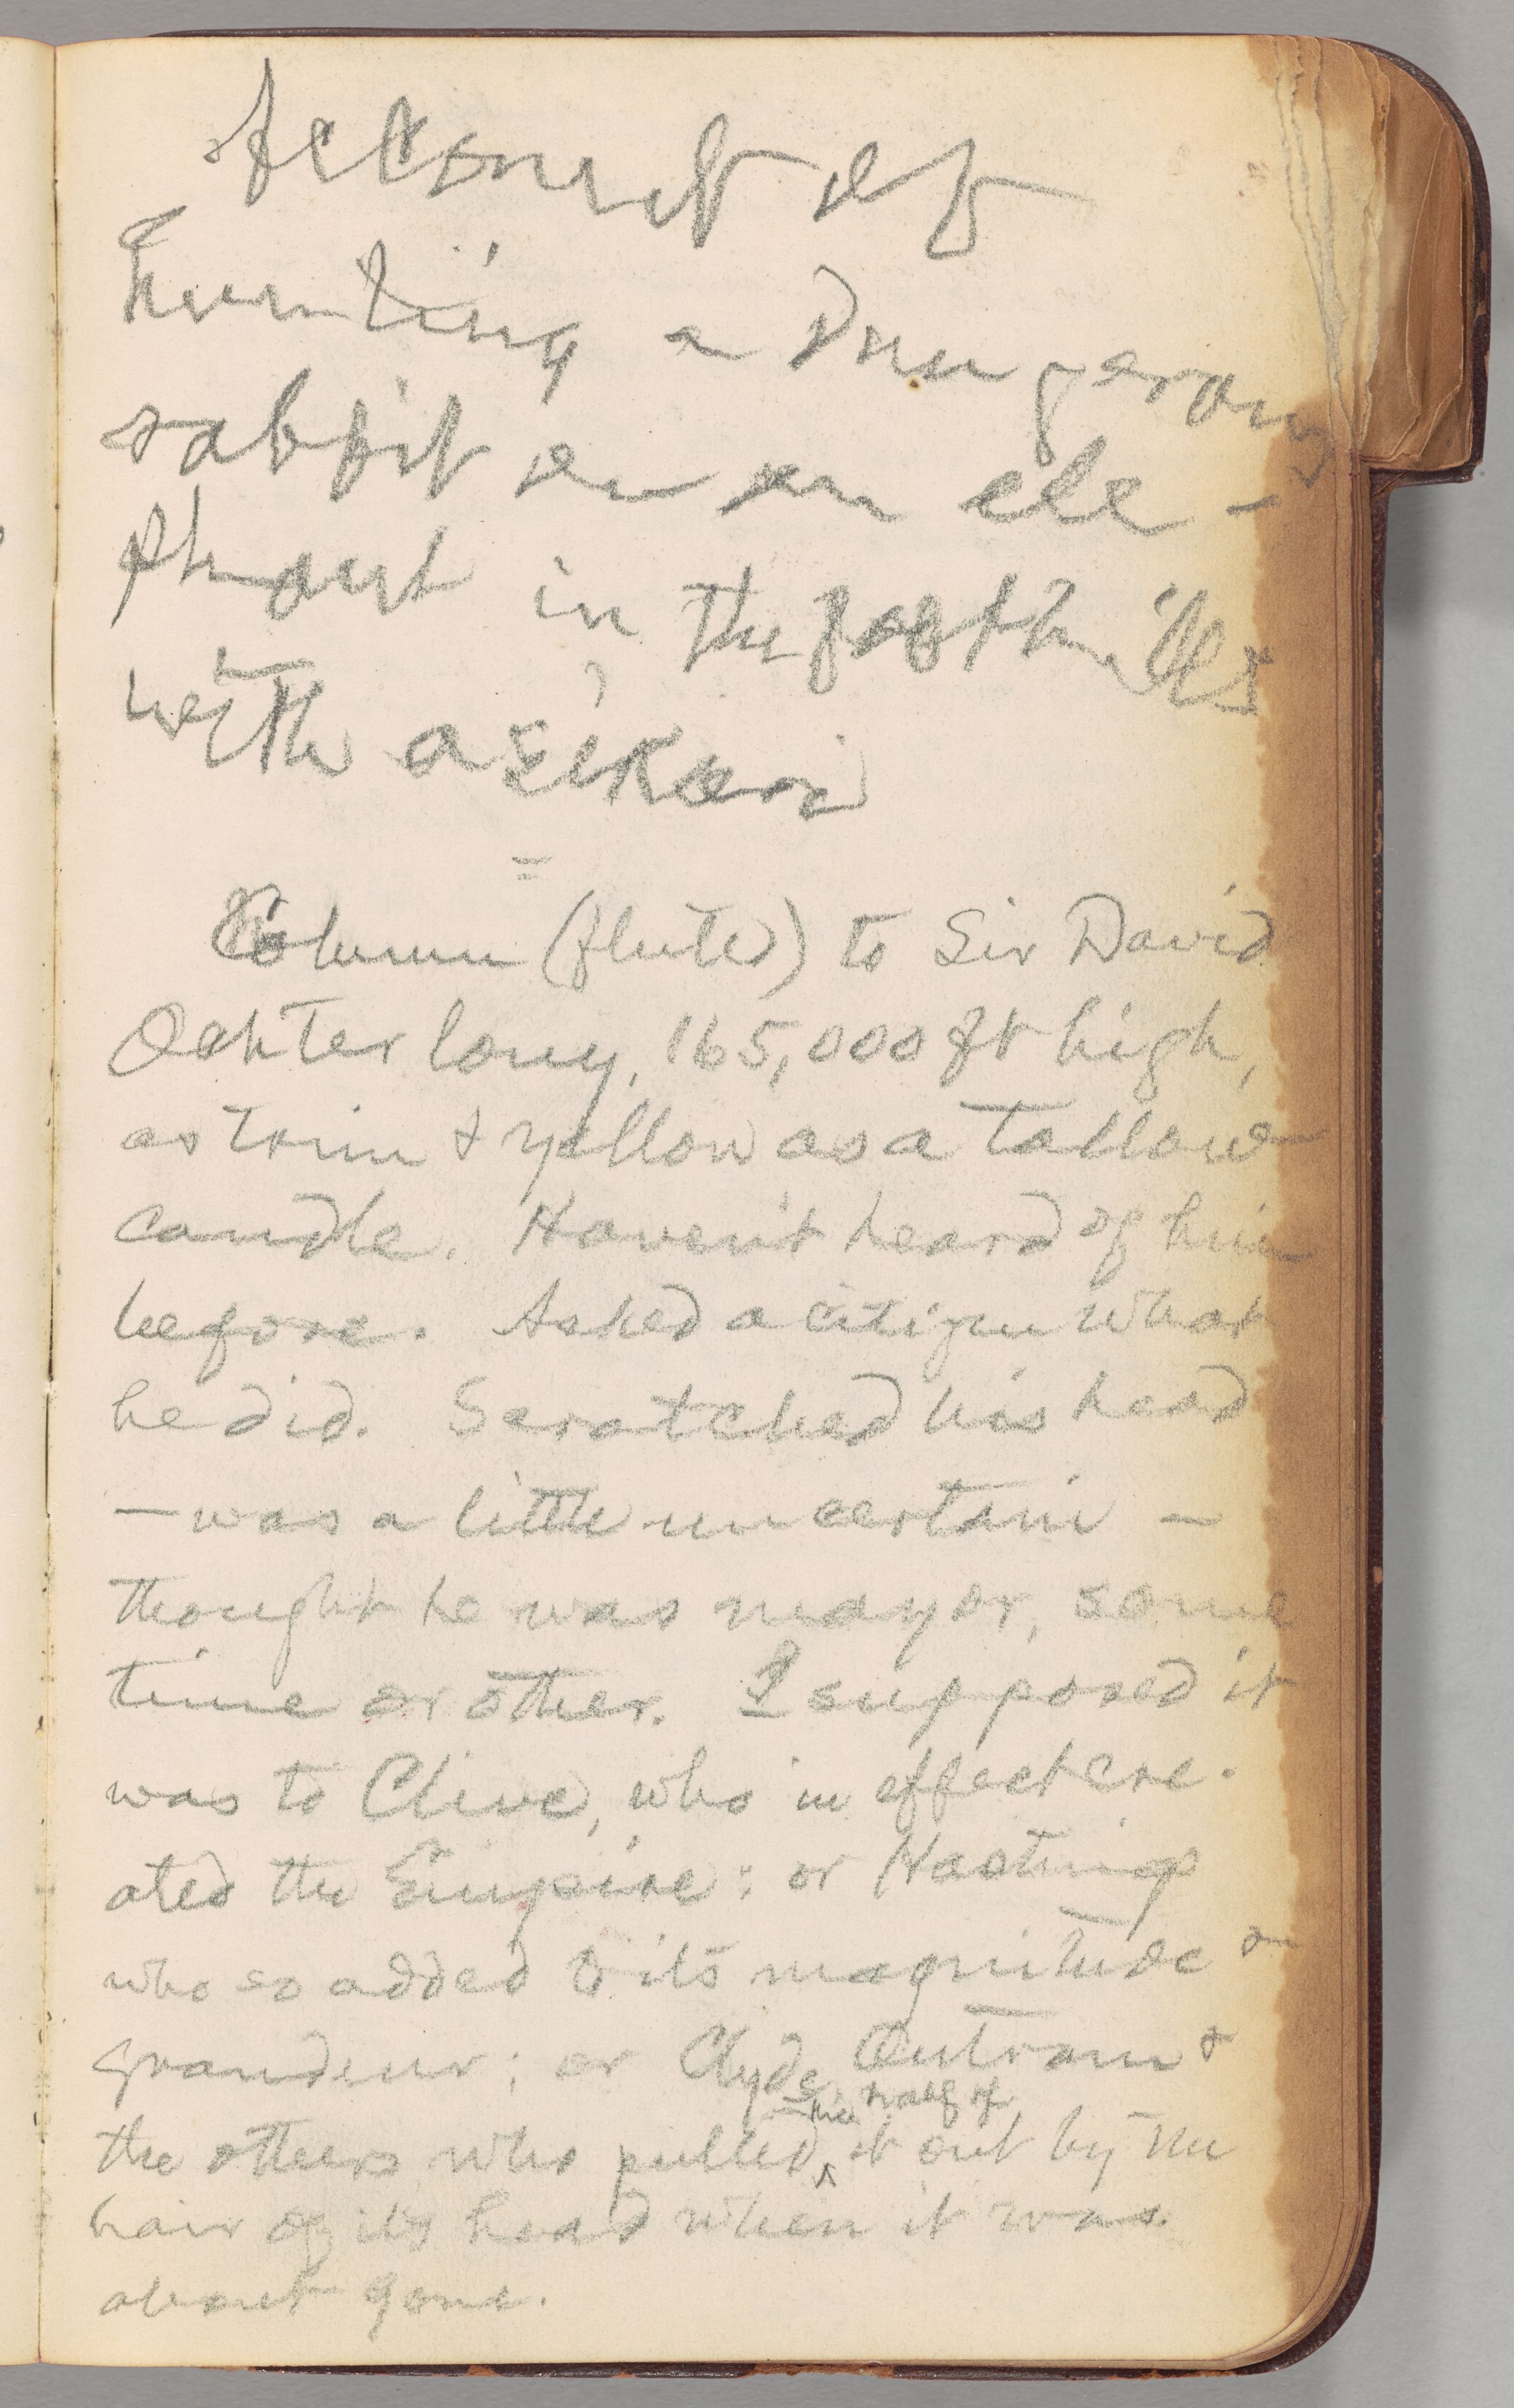 Account of
hunting a Dangerous
rabbit on an ele-
phant in the foothills
with a sikari
=
Column (flute) to Sir David
Ochterlony, 165,000 ft high,
as trim & yellow as a tallow
candle. Haven't heard of him
before. Asked a citizen what
he did. Scratched his head
— was a little uncertain —
thought he was mayor, some
time or other. I supposed it
was to Clive, who in effect cre-
ated the Empire; or Hastings
who so added to its magnitude &
grandeur; or Clyde, Outram &
the others who pulled it out by the
hair of its head when it was
about gone.